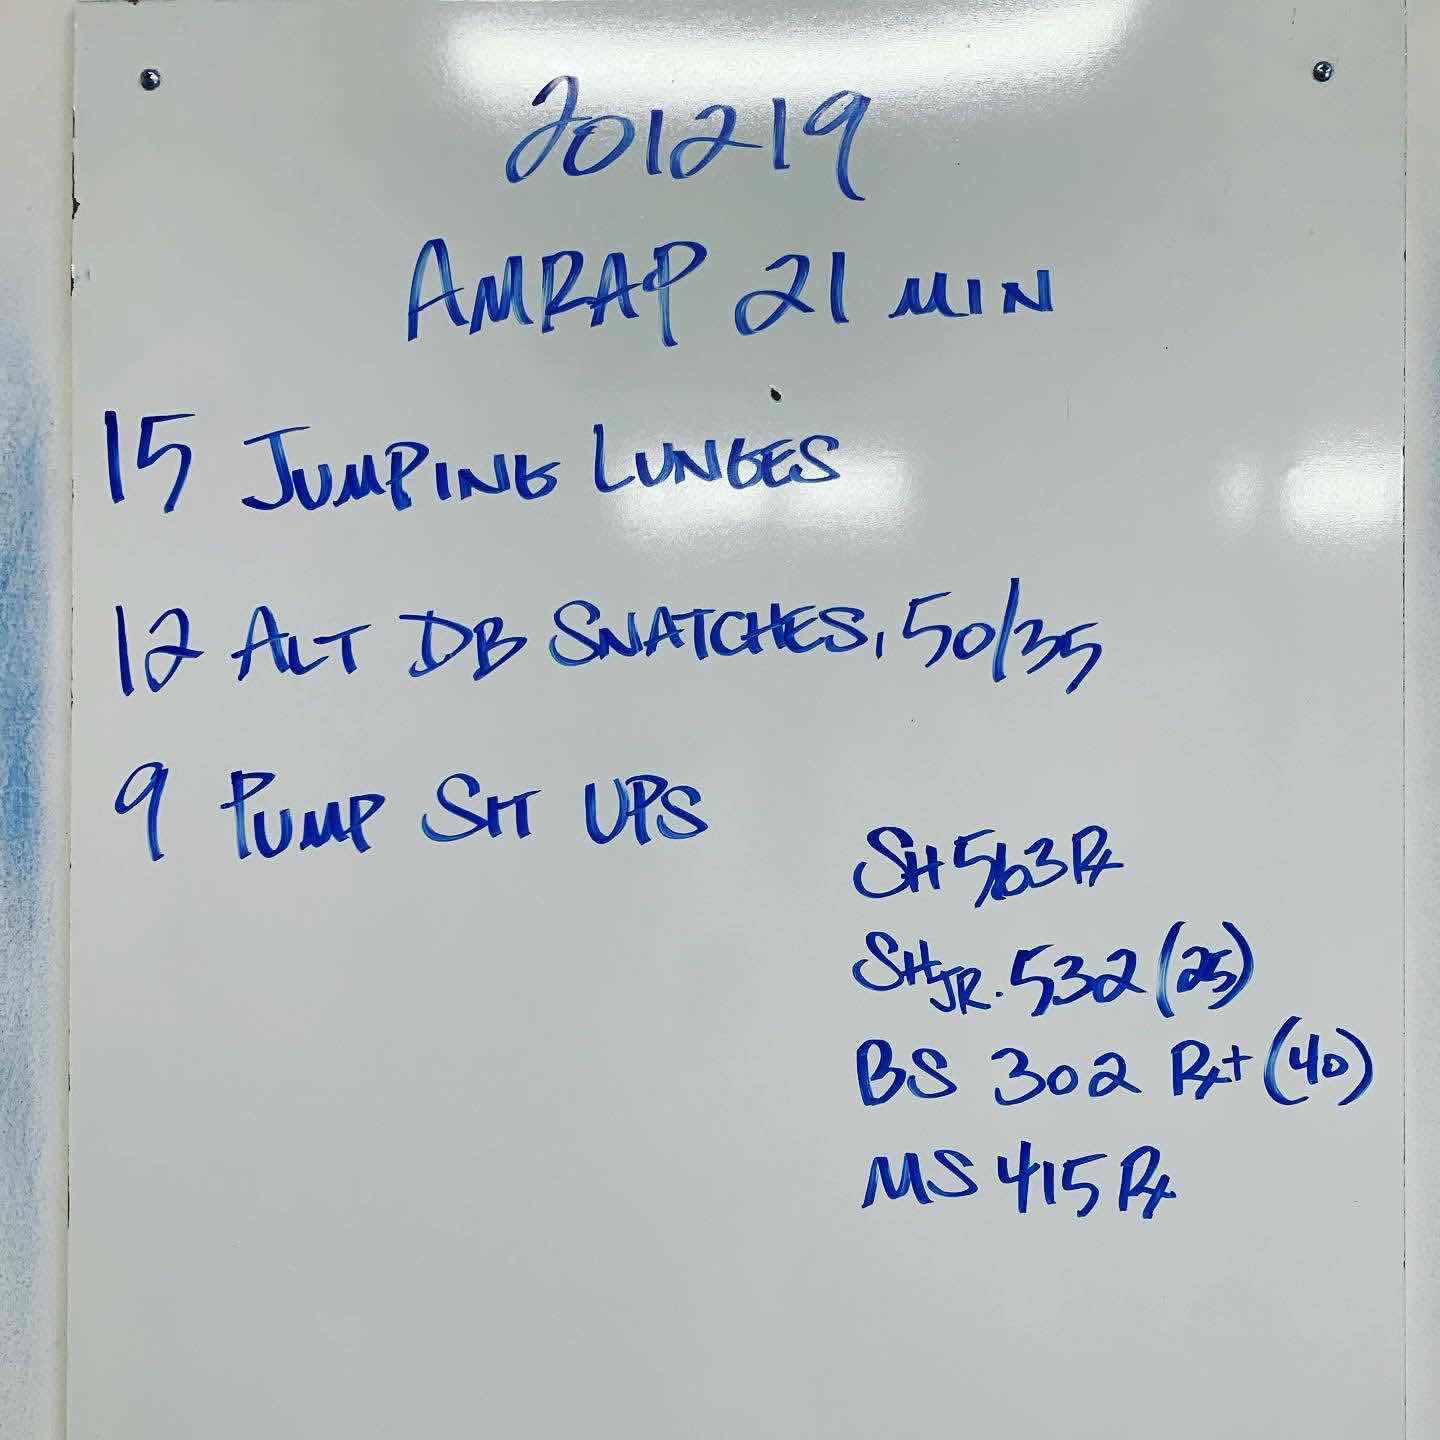 201219
AMRAP 21 MIN
15 JUMPING LUNGES
12 ALT DB SNATCHES, 50/35
9 PUMP SIT UPS
SH 563 Rx
SH JR. 532 (25)
BS 302 Rx+ (40)
MS 415 Rx